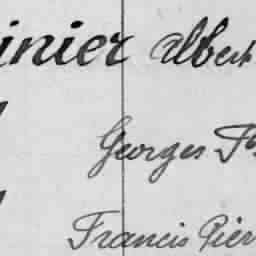 inier Albert
Georges
Francis Pier